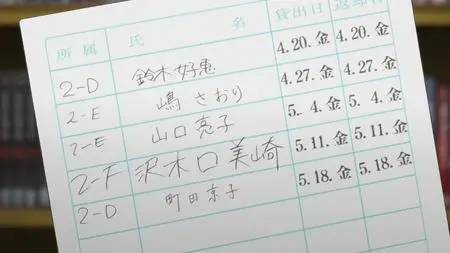 所属 氏 名 貸出日 返却日
2-D 鈴木好恵 4.20.金 4.20.金
2-E 嶋さおり 4.27.金 4.27.金
2-E 山口亮子 5.4.金 5.4.金
2-F 沢木口美崎 5.11.金 5.11.金
2-D 町田京子 5.18.金 5.18.金